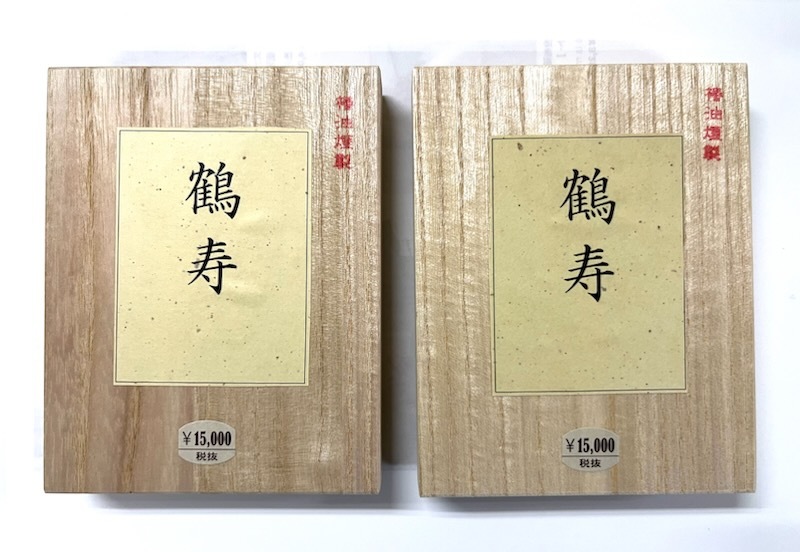 椿油煙製
鶴寿
¥15,000
税抜
椿油煙製
鶴寿
¥15,000
税抜